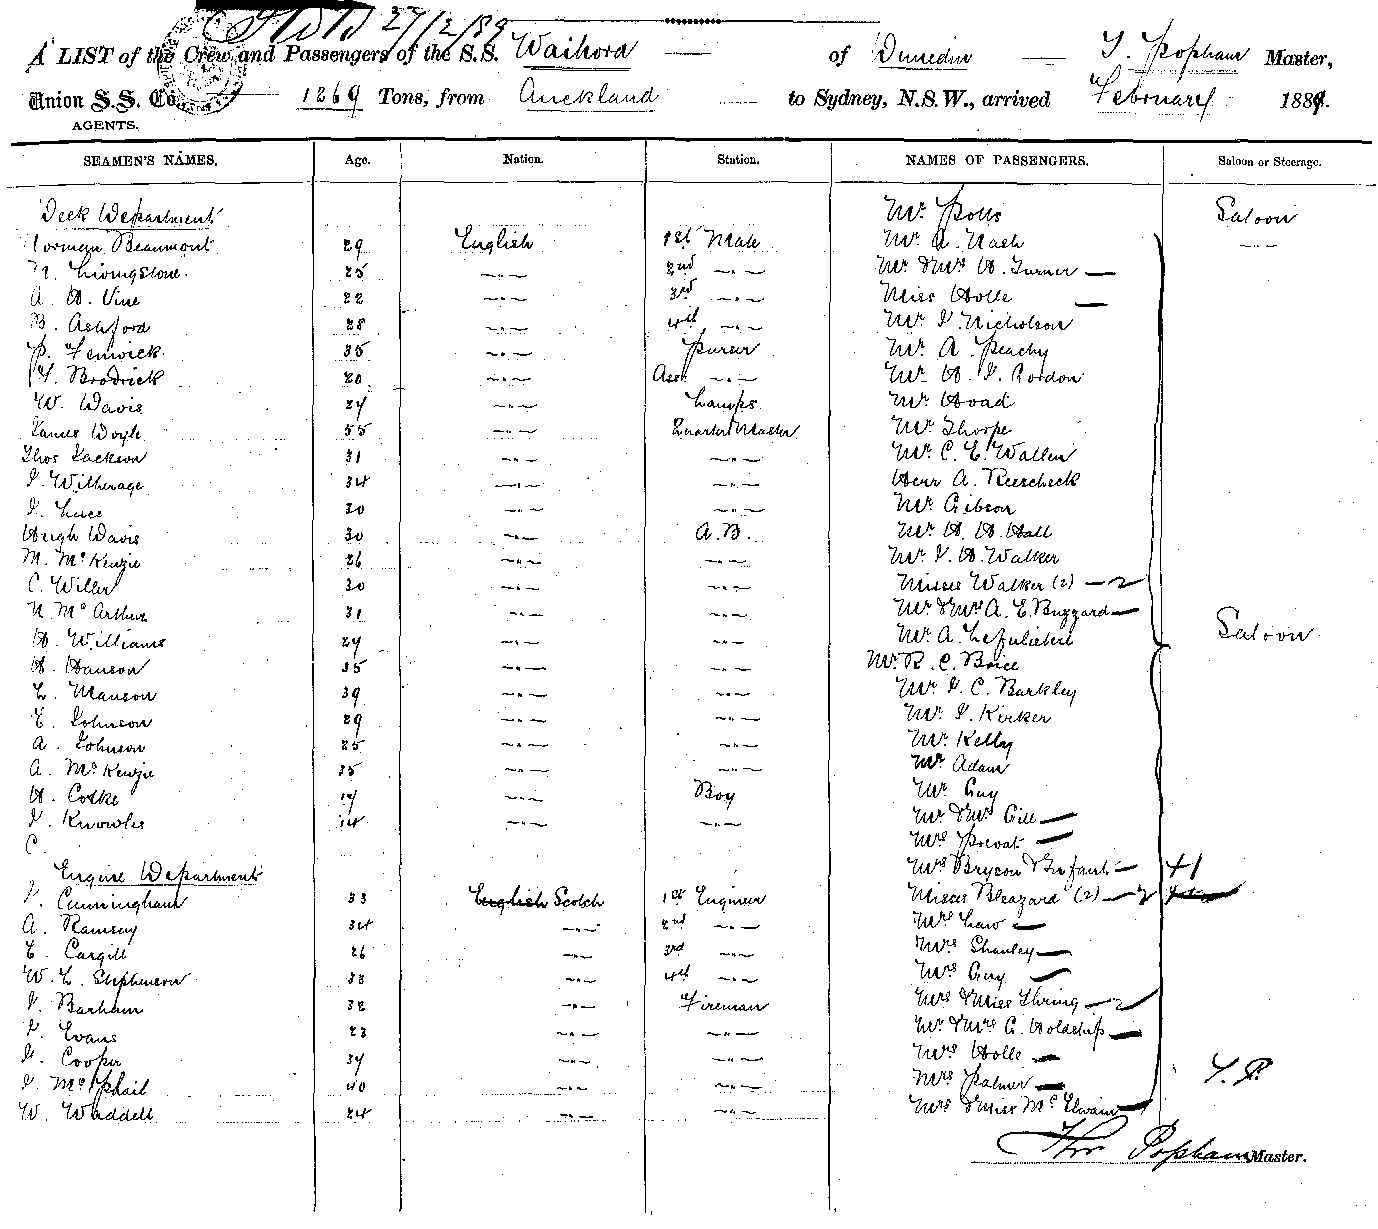 27/2/89
A LIST of the Crew and Passengers of the S.S. Waihora of Dunedin T. Popham Master,
Union S.S. Co. 1269 Tons, from Auckland to Sydney, N.S.W., arrived February 1889.
AGENTS.
SEAMEN'S NAMES. Age. Nation. Station. NAMES OF PASSENGERS. Saloon or Steerage.
Deck Department Mr Potts Saloon
Norman Beaumont 29 English 1st Mate Mr A. Nash —"—
N. Livingstone 25 —"— 2nd —"— Mr & Mrs H. Turner —
A. H. Vine 22 —"— 3rd —"— Miss Holle —
B. Ashford 28 —"— 4th —"— Mr J. Nicholson
P. Fenwick 35 —"— Purser Mr A. Peachy
Brodrick 20 —"— Asst —"— Mr H. J. Gordon
W. Davis 24 —"— Lamps Mr Hoad
James Doyle 55 —"— Quarter Master Mr Thorpe
Thos Jackson 31 —"— —"— Mr C. E. Wallen
J. Witherage 34 —"— —"— Herr A. Reescheck
J. Luce 30 —"— —"— Mr Gibson
Hugh Davis 30 —"— A.B. Mr H. H. Hall
M. McKenzie 26 —"— —"— Mr J. H. Walker
C. Willer 30 —"— —"— Misses Walker (2) — 2
N. McArthur 31 —"— —"— Mr & Mrs A. E. Buzzard —
H. Williams 29 —"— —"— Mr A. Saloon
H. Hanson 35 —"— —"— Mr R. C. Brice
L. Manson 39 —"— —"— Mr J. C. Barkley
E. Johnson 29 —"— —"— Mr J. Kirker
A. Johnson 25 —"— —"— Mr Kelly
A. McKenzie 35 —"— —"— Mr Adam
H. Cooke 17 —"— Boy Mr Guy
J. Knowles 14 —"— —"— Mr & Mrs Gill —
C Mrs —
Engine Department Mrs Bryson & Infant — +1
J. Cunningham 33 English Scotch 1st Engineer Misses Bleazard (2) — 2
A. Ramsay 34 —"— 2nd —"— Mrs Law —
E. Cargill 26 —"— 3rd —"— Mrs Shanley —
W. L. Stephenson 33 —"— 4th —"— Mrs Guy —
J. Barham 32 —"— Fireman Mrs & Miss Thring — 2
J. Evans 23 —"— —"— Mr & Mrs G. Holdship —
Cooper 34 —"— —"— Mrs Holle —
J. McPhail 40 —"— —"— Mrs Palmer — T.P.
W. Waddell 24 —"— —"— Mrs & Miss McElwain —
Thos Popham Master.